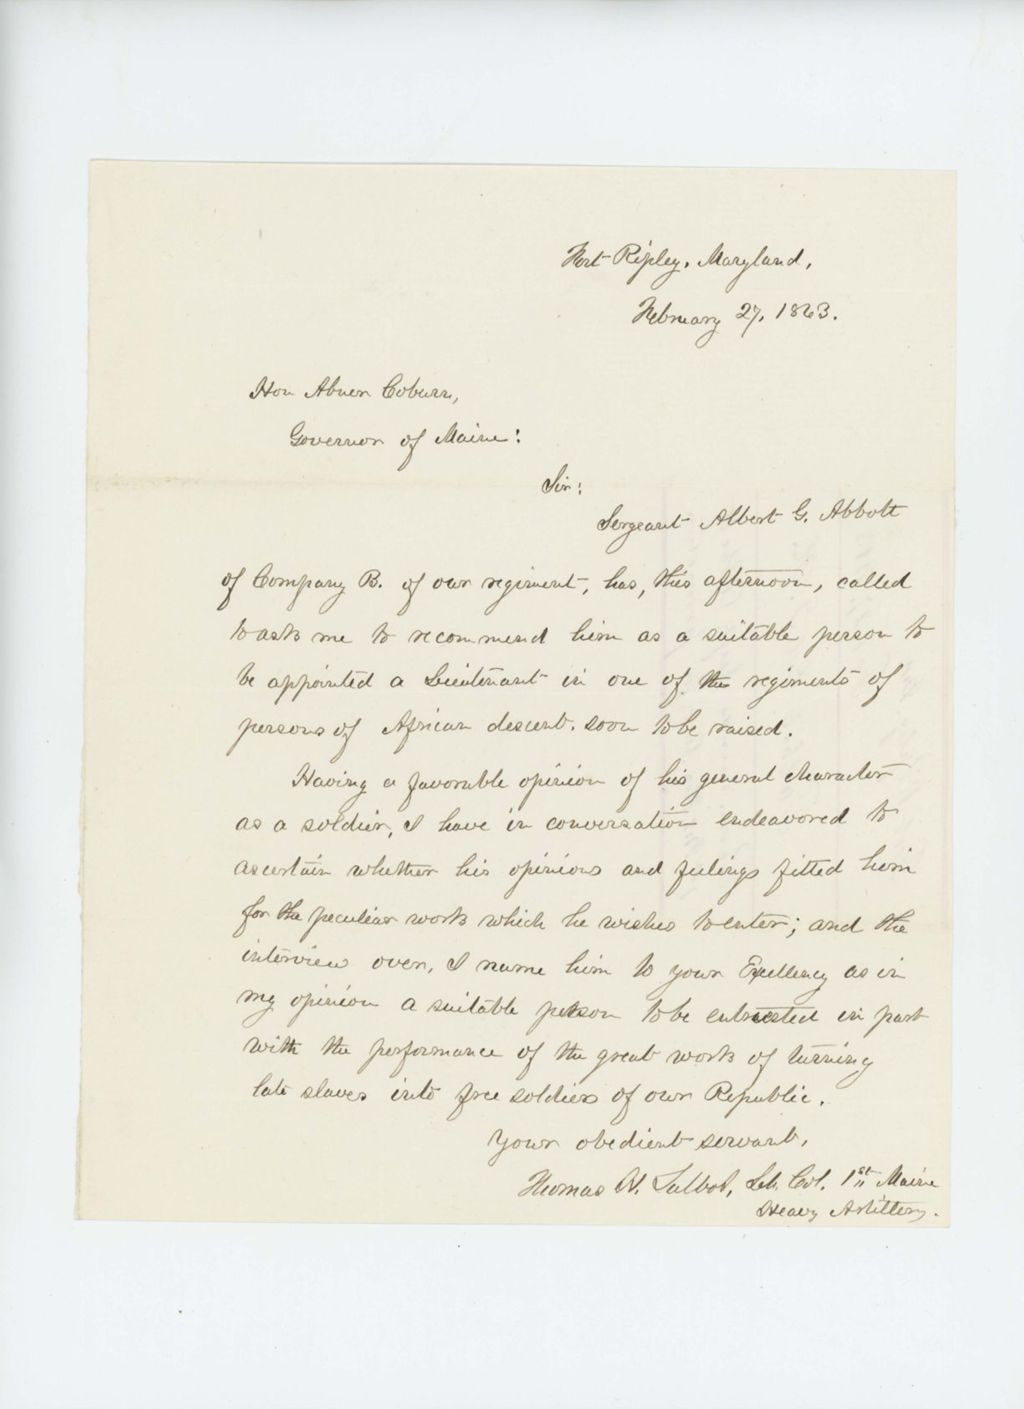 Fort Ripley, Maryland,
February 27, 1863.
Hon Abner Coburn,
Governor of Maine:
Sir:
Sergeant Albert G. Abbott
of Company B. of our regiment, has, this afternoon, called
to ask me to recommend him as a suitable person to
be appointed a Lieutenant in one of the regiments of
persons of African descent. soon to be raised.
Having a favorable opinion of his general character
as a soldier, I have in conversation endeavored to
ascertain whether his opinions and feelings fitted him
for the peculiar work which he wishes to enter; and the
interview over, I name him to your Excellency as in
my opinion a suitable person to be entrusted in part
with the performance of the great work of turning
late slaves into free soldiers of our Republic.
Your obedient servant,
Thomas H. Talbot, Lt. Col. 1st Maine
Heavy Artillery.